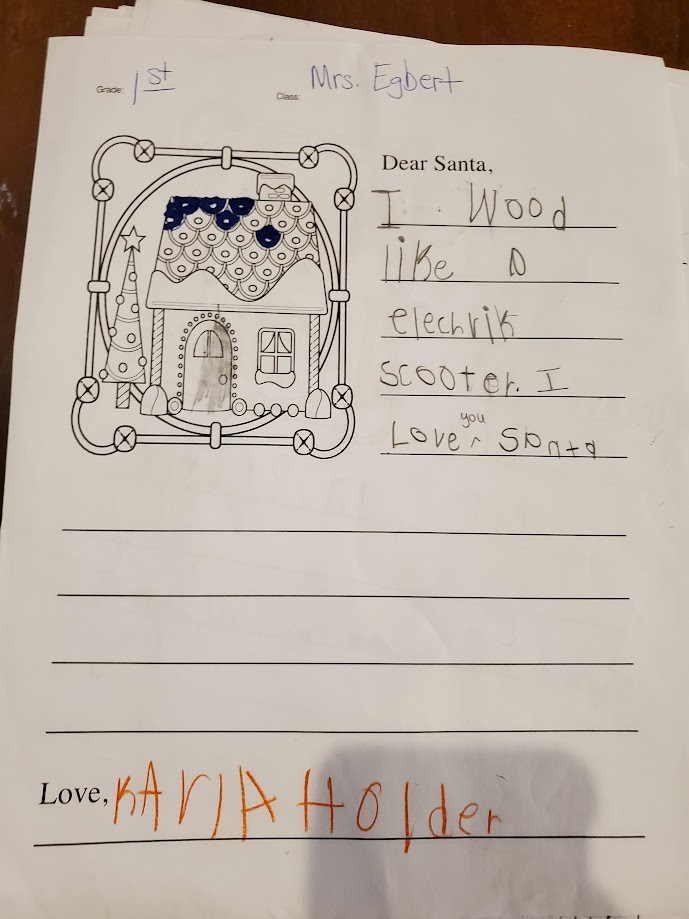 Grade: 1st Class: Mrs. Egbert
Dear Santa,
I Wood
like a
elechrik
scooter. I
you
Love ^ Santa
Love, KARIA Holder